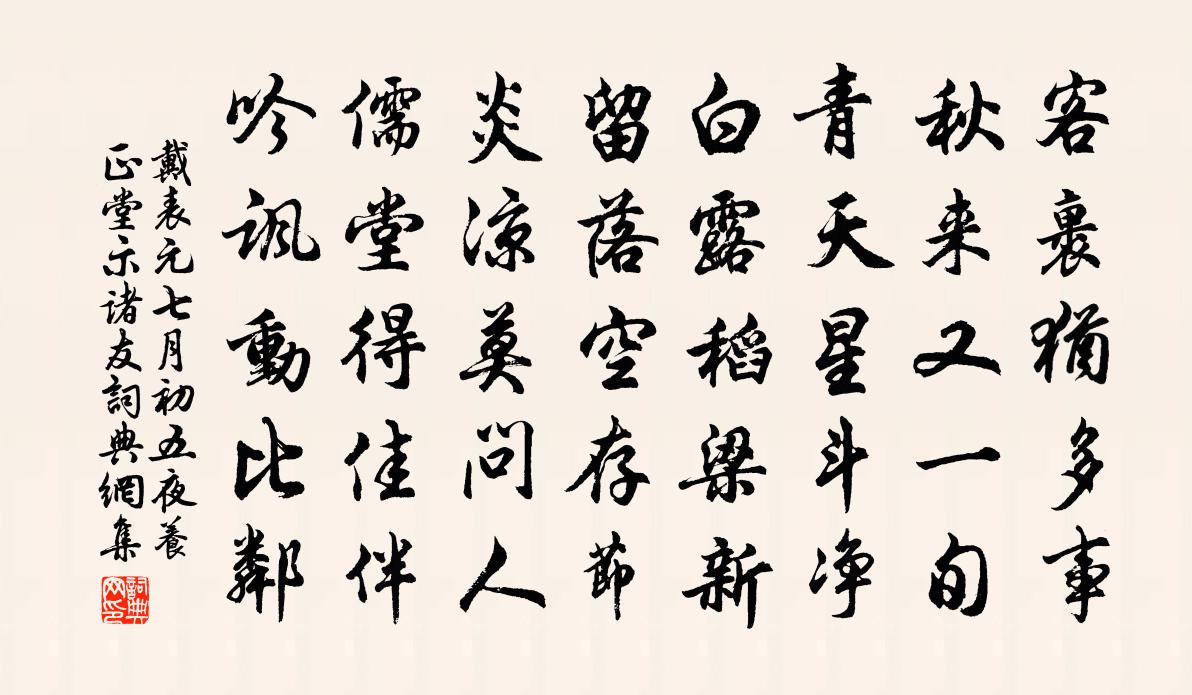 客裏猶多事
秋来又一旬
青天星斗净
白露稻梁新
留落空存節
炎凉莫問人
儒堂得佳伴
吟諷動比鄰
戴表元七月初五夜養
正堂示诸友詞典網集
詞典网印